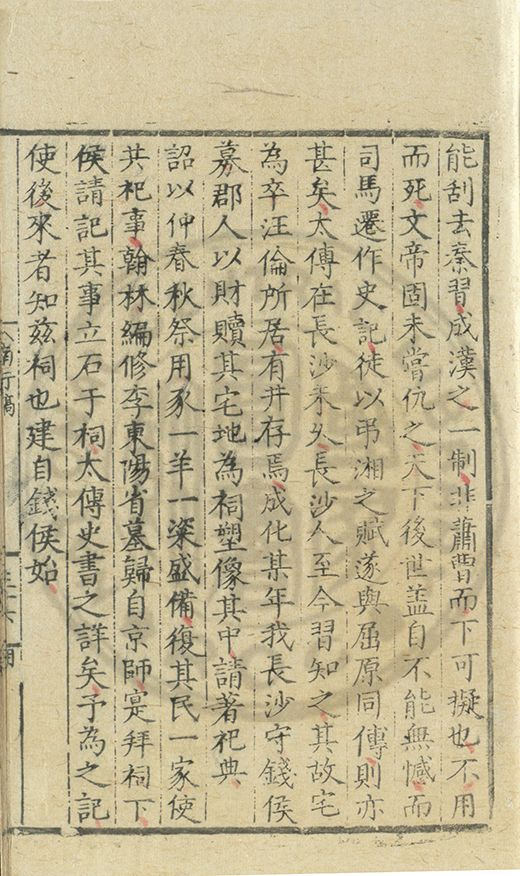 能刮去秦習成漢之一制非蕭曹而下可擬也不用
而死文帝固未嘗仇之天下後世蓋自不能無憾而
司馬遷作史記徒以弔湘之賦遂與屈原同傳則亦
甚矣太傅在長沙未久長沙人至今習知之其故宅
為卒汪倫所居有井存焉成化某年我長沙守錢侯
募郡人以財贖其宅地為祠塑像其中請著祀典
詔以仲春秋祭用豕一羊一粢盛備復其民一家使
共祀事翰林編修李東陽省墓歸自京師寔拜祠下
侯請記其事立石于祠太傅史書之詳矣予為之記
使後來者知茲祠也建自錢侯始
南行稿